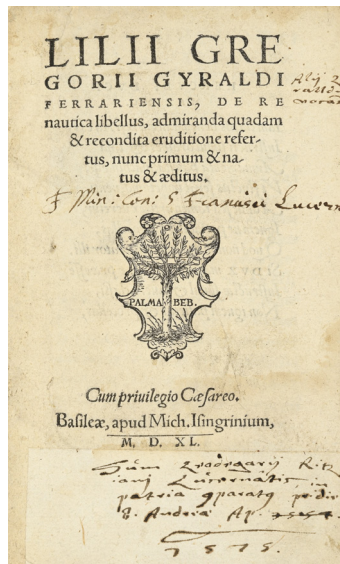 LILII GRE
GORII GYRALDI
FERRARIENSIS, DE RE
nautica libellus, admiranda quadam
& recondita eruditione refer-
tus, nunc primum & na-
tus & æditus.
Min: Con: S Francisci Lucern
PALMA BEB.
Cum privilegio Cæsareo.
Basileæ, apud Mich. Isingrinium,
M. D. XL.
Sum
Lucernatis in
patria
S. Andreæ Ap.
1575.